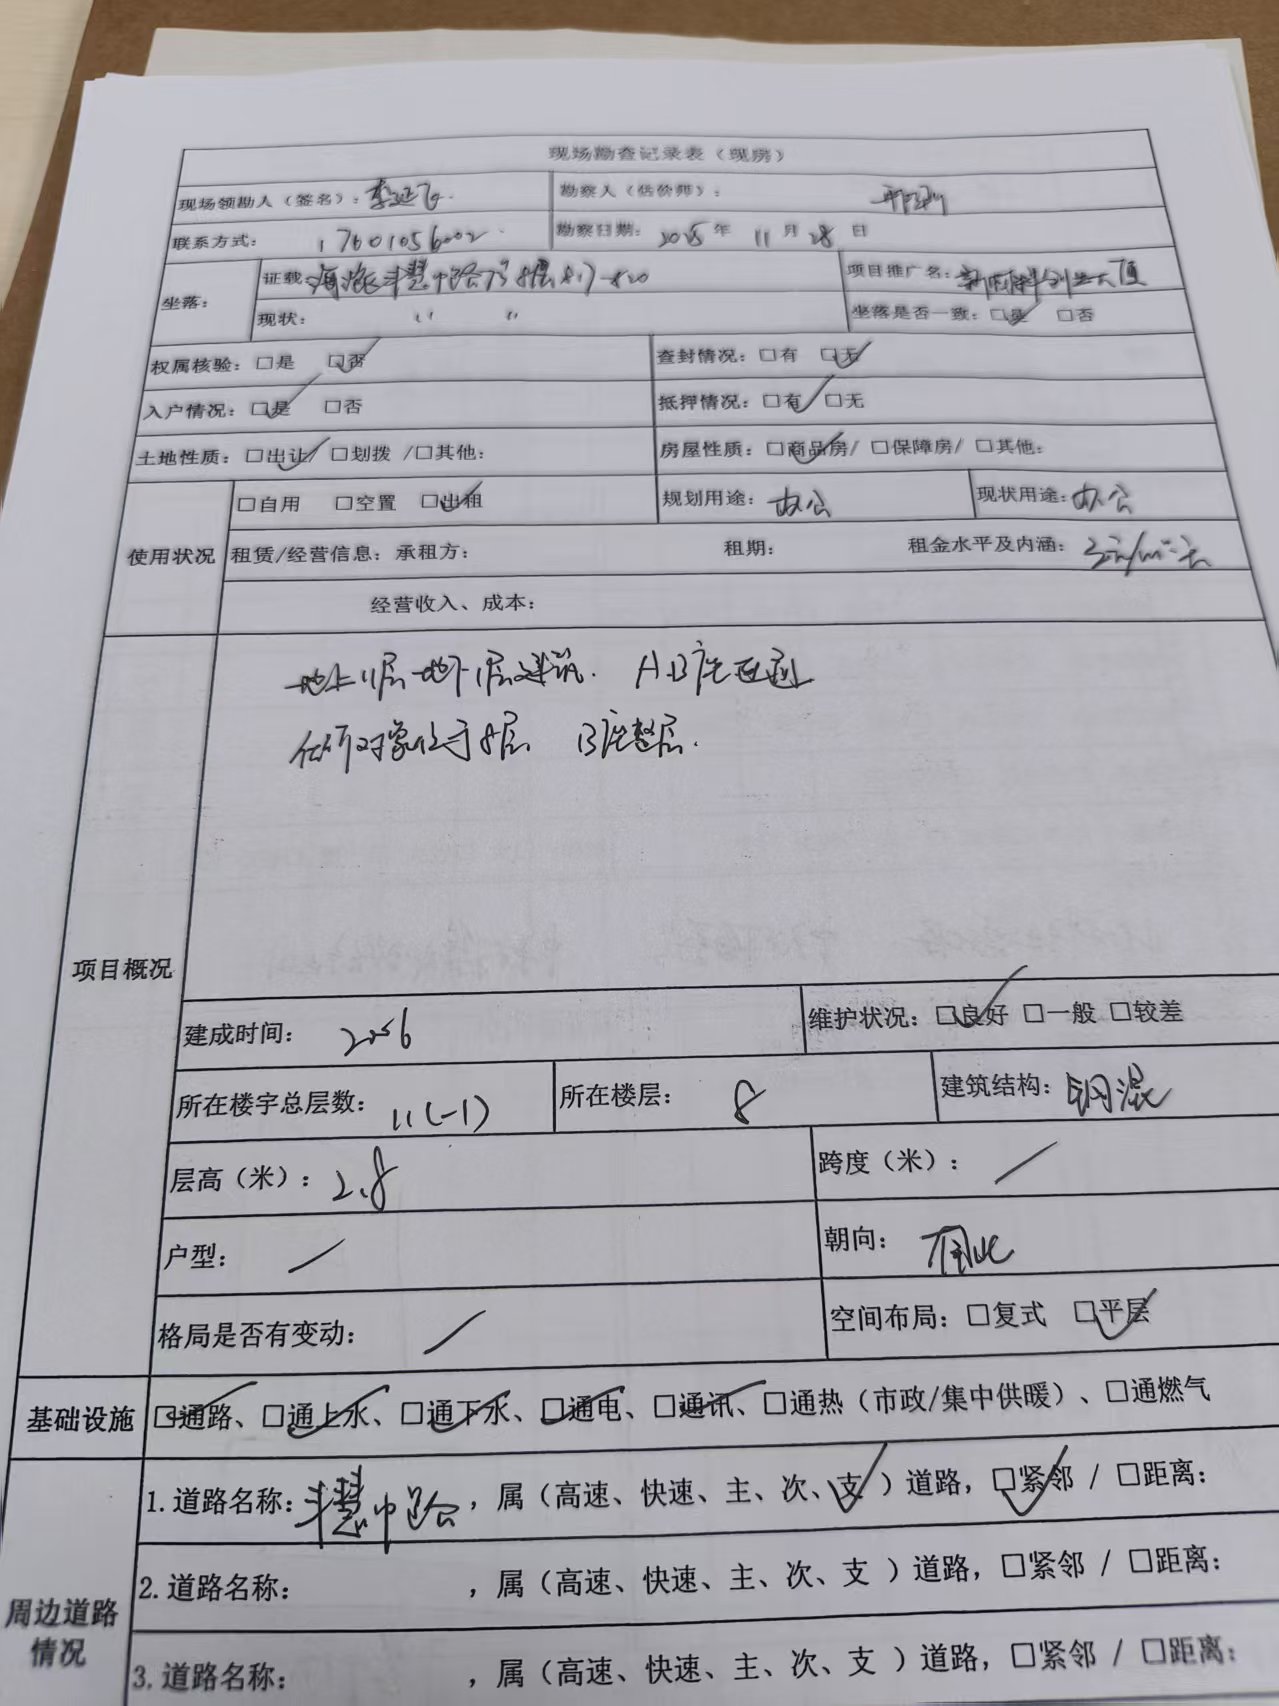 现场勘查记录表（现房）
现场领勘人（签名）：李延飞 勘察人（估价师）：
联系方式： 17601056002 勘察日期：2025年 11月 28日
坐落： 证载: 海淀 中路 号8层817-820 项目推广名: 大厦
现状： 〃 〃 坐落是否一致：☑是 □否
权属核验：□是 ☑否 查封情况：□有 ☑无
入户情况：☑是 □否 抵押情况：☑有 □无
土地性质：☑出让/ □划拨 /□其他: 房屋性质：☑商品房/ □保障房/ □其他:
使用状况 □自用 □空置 ☑出租 规划用途：办公 现状用途：办公
租赁/经营信息：承租方： 租期： 租金水平及内涵： 3元/m²·天
经营收入、成本：
项目概况 地上11层地下1层建筑. A.B座连通
估价对象位于8层 B座整层.
建成时间： 维护状况：☑良好 □一般 □较差
所在楼宇总层数： 11(-1) 所在楼层： 8 建筑结构：钢混
层高（米）：2.8 跨度（米）： ／
户型： ／ 朝向：
格局是否有变动： ／ 空间布局：□复式 ☑平层
基础设施 ☑通路、☑通上水、☑通下水、☑通电、☑通讯、□通热（市政/集中供暖）、□通燃气
周边道路情况 1.道路名称：斗慧中路，属（高速、快速、主、次、支✓）道路，☑紧邻 / □距离：
2.道路名称： ，属（高速、快速、主、次、支 ）道路，□紧邻 / □距离：
3.道路名称： ，属（高速、快速、主、次、支 ）道路，□紧邻 / □距离：